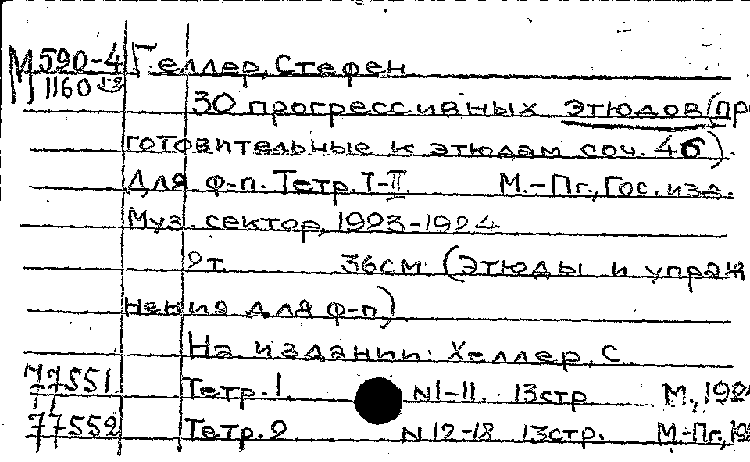 М 590-4 Геллер, Стефен
1160
30 прогрессивных этюдов (при
готовительные к этюдам соч. 46).
Для ф-п. Тетр. I-II. М.-Пг., Гос. изд.
Муз. сектор, 1923-1924
2 т. 36см. (Этюды и упраж
нения для ф-п)
На издании: Хеллер, С.
77551 Тетр. 1. N 1-11. 13 стр. М., 1924
77552 Тетр. 2 N 12-18 13 стр. М.-Пг.,